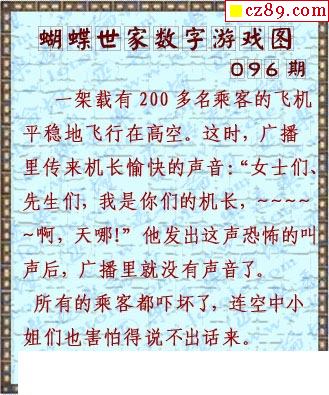 cz89.com
蝴蝶世家数字游戏图
096 期
一架载有 200 多名乘客的飞机
平稳地飞行在高空。这时,广播
里传来机长愉快的声音:“女士们、
先生们,我是你们的机长,~~~~
~啊,天哪!” 他发出这声恐怖的叫
声后,广播里就没有声音了。
所有的乘客都吓坏了,连空中小
姐们也害怕得说不出话来。